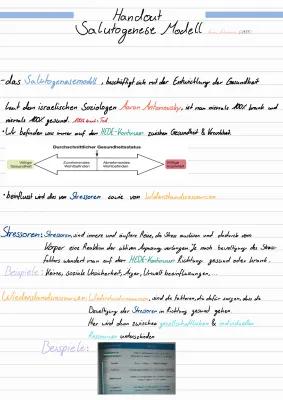 Handout
Salutogenese Modell
-das Salutogenesemodell, beschäftigt sich mit der Entwicklung der Gesundheit
laut dem israelischen Soziologen Aaron Antonovsky, ist man niemals 100% krank und
niemals 100% gesund. 100% krank = Tod
• Wir befinden uns immer auf der HEDE-Kontinuum zwischen Gesundheit & Krankheit.
Durchschnittlicher Gesundheitsstatus
Völlige Gesundheit
Zunehmendes Wohlbefinden
Abnehmendes Wohlbefinden
Völlige Krankheit
• beeinflusst wird dies von Stressoren sowie von Widerstandsressourcen
Stressoren: Stressoren, sind innere und äußere Reize, die Stress auslösen und dadurch vom
Körper eine Reaktion der aktiven Anpassung verlangen. Je nach bewältigung des Stress-
faktors wandert man auf dem HEDE-Kontinuum Richtung gesund oder krank.
Beispiele: Keine, soziale Unsicherheit, Ärger, Umwelt beeinflussungen,...
Wiederstandsressourcen: Widerstandsressourcen, sind die faktoren, die dafür sorgen, dass die
Bewältigung der Stressoren in Richtung gesund gehen.
Hier wird dann zwischen gesellschaftlichen & individuellen
Ressourcen unterschieden
Beispiele: